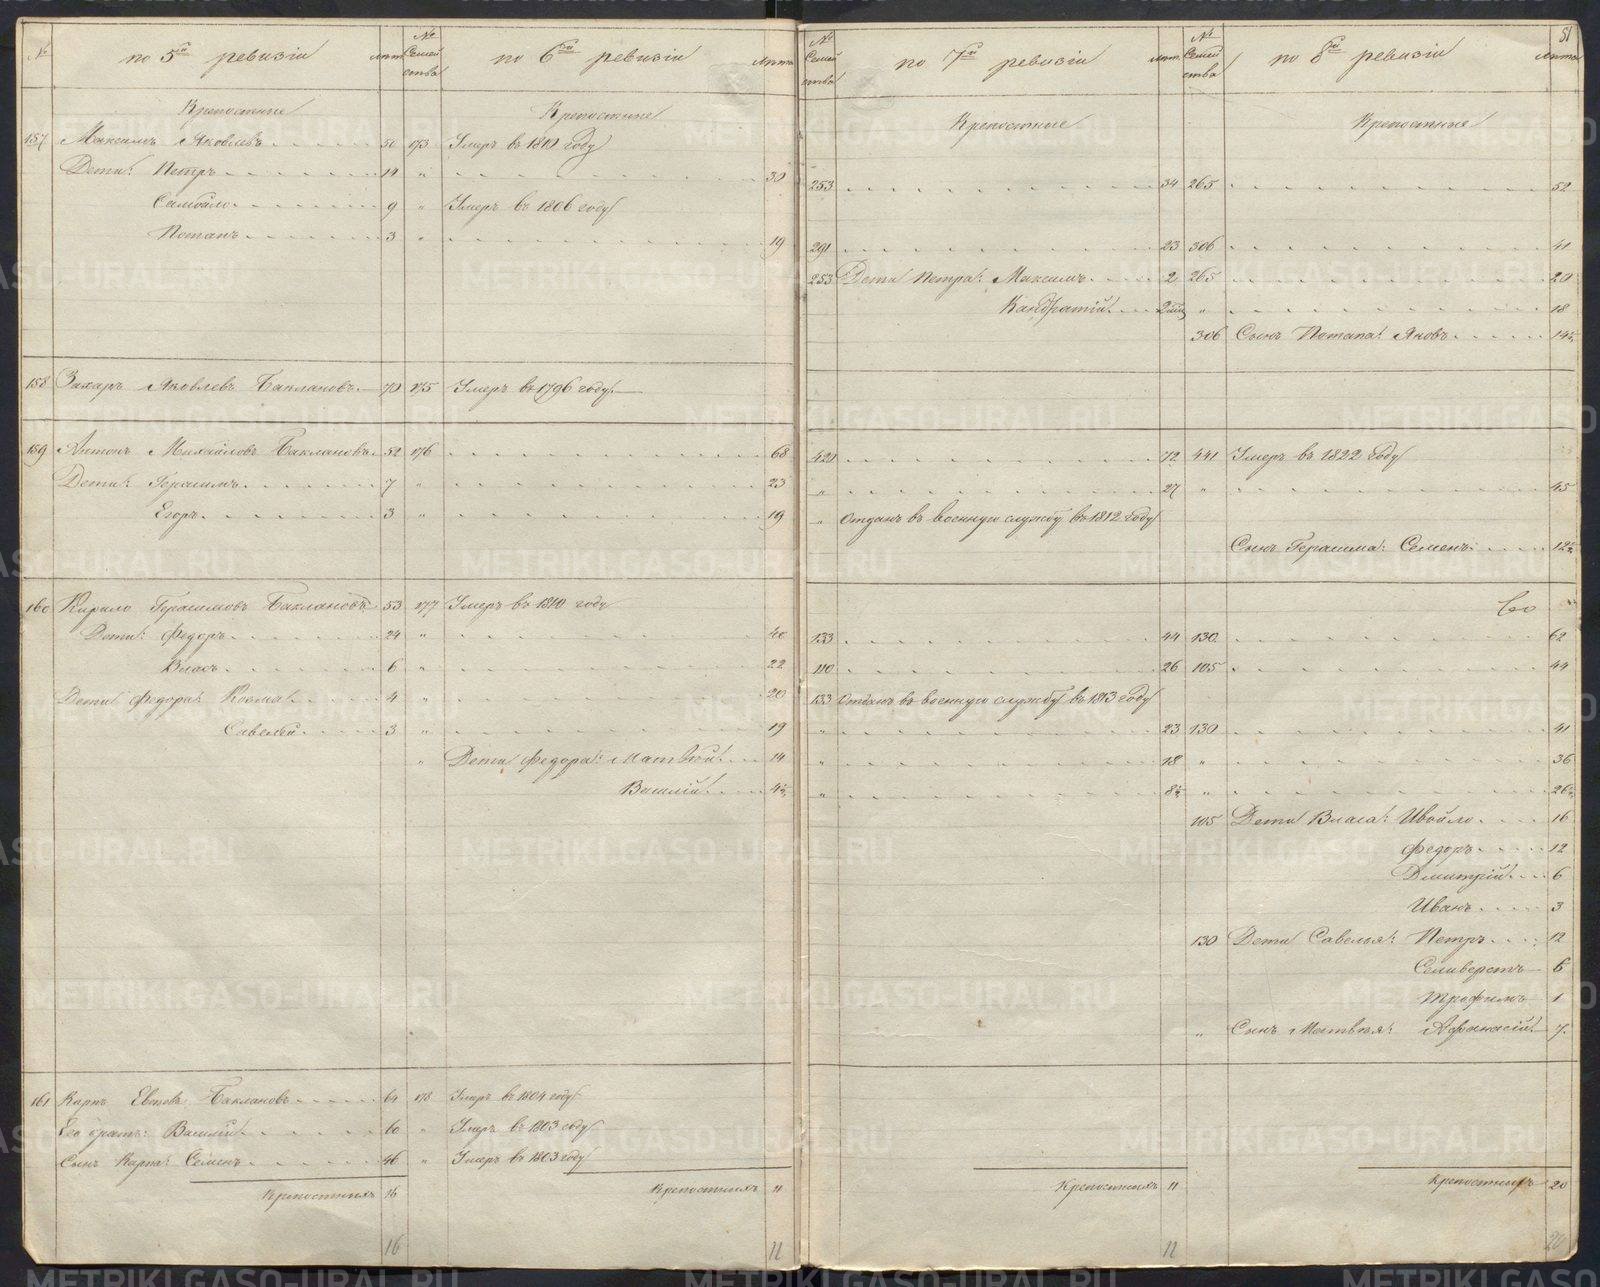 51
№ по 5й ревизіи лѣта № Семейства по 6й ревизіи лѣта № Семейства по 7й ревизіи лѣта № Семейства по 8й ревизіи лѣта
Крепостные Крепостные Крепостные Крепостные
157 Максимъ Яковлевъ 50 173 Умеръ въ 1810 году
Дети: Петръ 14 " 30 253 34 265 52
Самойло 9 " Умеръ въ 1806 году
Потапъ 3 " 19 291 23 306 41
253 Дети Петра: Максимъ 2 265 20
Кандратій " 18
306 Сынъ Потапа: Яковъ
158 Захаръ Яковлевъ Баклановъ 70 175 Умеръ въ 1796 году
159 Антонъ Михайловъ Баклановъ 52 176 68 421 72 441 Умеръ въ 1822 году
Дети: Герасимъ 7 " 23 " 27 " 45
Егоръ 3 " 19 " Отданъ въ военную службу въ 1812 году
Сынъ Герасима: Семенъ
160 Кирило Герасимовъ Баклановъ 53 177 Умеръ въ 1810 году
Дети: Федоръ 24 " 40 133 44 130 62
Власъ 6 " 22 110 26 105 44
Дети Федора: Козма 4 " 20 133 Отданъ въ военную службу въ 1813 году
Савелей 3 " 19 " 23 130 41
" Дети Федора: Матвѣй 14 " 18 " 36
Василій " "
105 Дети Власа: Ивойло 16
Федоръ 12
Дмитрій 6
Иванъ 3
130 Дети Савелья: Петръ 12
Селиверстъ 6
Трофимъ 1
" Сынъ Матвѣя: Афанасій 7
161 Карпъ Баклановъ 64 178 Умеръ въ 1804 году
Его братъ: Василій 60 " Умеръ въ 1803 году
Сынъ Карпа: Семенъ 46 " Умеръ въ 1803 году
Крепостныхъ 16 Крепостныхъ 11 Крепостныхъ 11 Крепостныхъ 20
16 11 11 20
METRIKI.GASO-URAL.RU